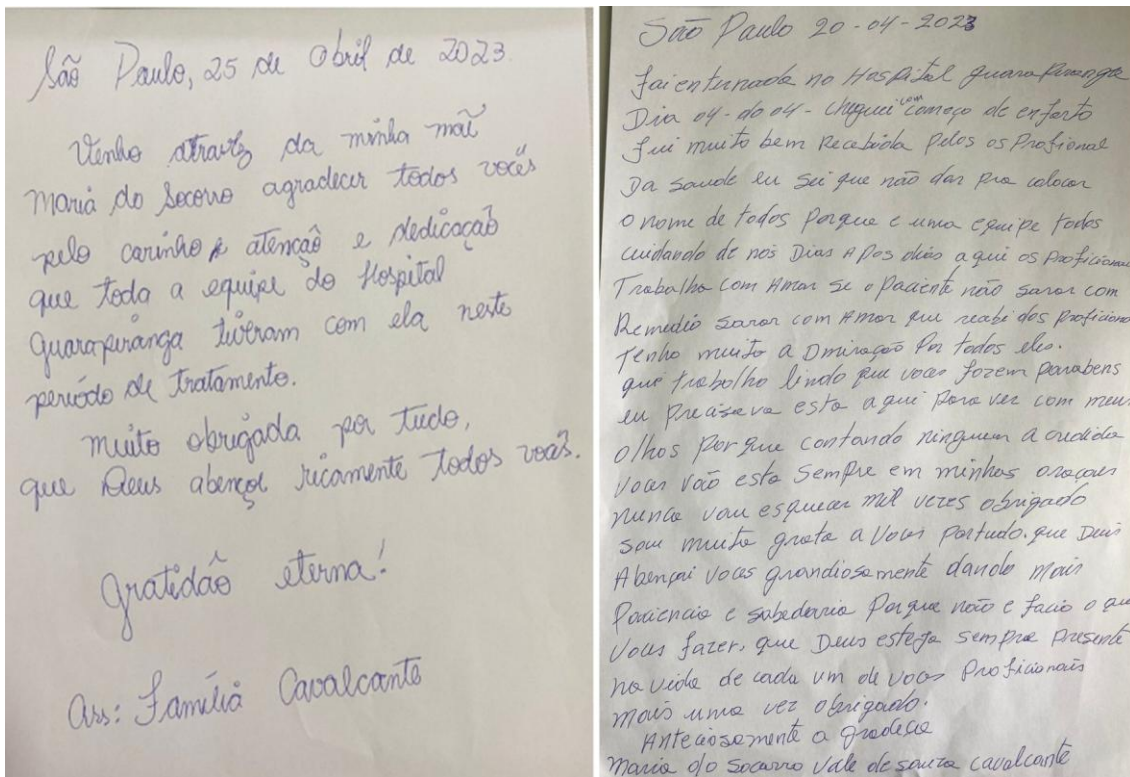 São Paulo, 25 de Abril de 2023.
Venho atravez da minha mãe
Maria do Socorro agradecer todos vocês
pelo carinho e atenção e dedicação
que toda a equipe do Hospital
Guarapiranga tiveram com ela neste
período de tratamento.
Muito obrigada por tudo,
que Deus abençoe ricamente todos vocês.
Gratidão eterna!
Ass: Família Cavalcante
São Paulo 20-04-2023
fui enternada no Hospital guarapiranga
Dia 04-do 04- cheguei com começo de enfarto
fui muito bem Recebida Pelos os Profional
Da saude eu sei que não dar pra colocar
o nome de todos Porque e uma equipe todos
cuidando de nós Dias Apos dias aqui os Proficionais
Trabalha com Amor se o Paciente não sarar com
Remedio sarar com Amor que recebi dos Proficiona
Tenho muito a Dmiração Por todos eles.
que trabalho lindo que voces fazem parabens
eu Precisava esta aqui Para ver com meus
olhos Porque contando ninguem a credida
voces vão esta sempre em minhas oraçoes
nunca vou esquecer mil vezes obrigado
sou muito grata a voces Portudo. que Deus
Abençoi voces grandiosamente dando mais
Paciencia e sabederria Porque não e facio o que
voces fazer, que Deus esteja sempre Presente
na vida de cada um de voces Proficionais
mais uma vez obrigado.
Anteciosamente a gradece
Maria do Socorro Vale de souza cavalcante